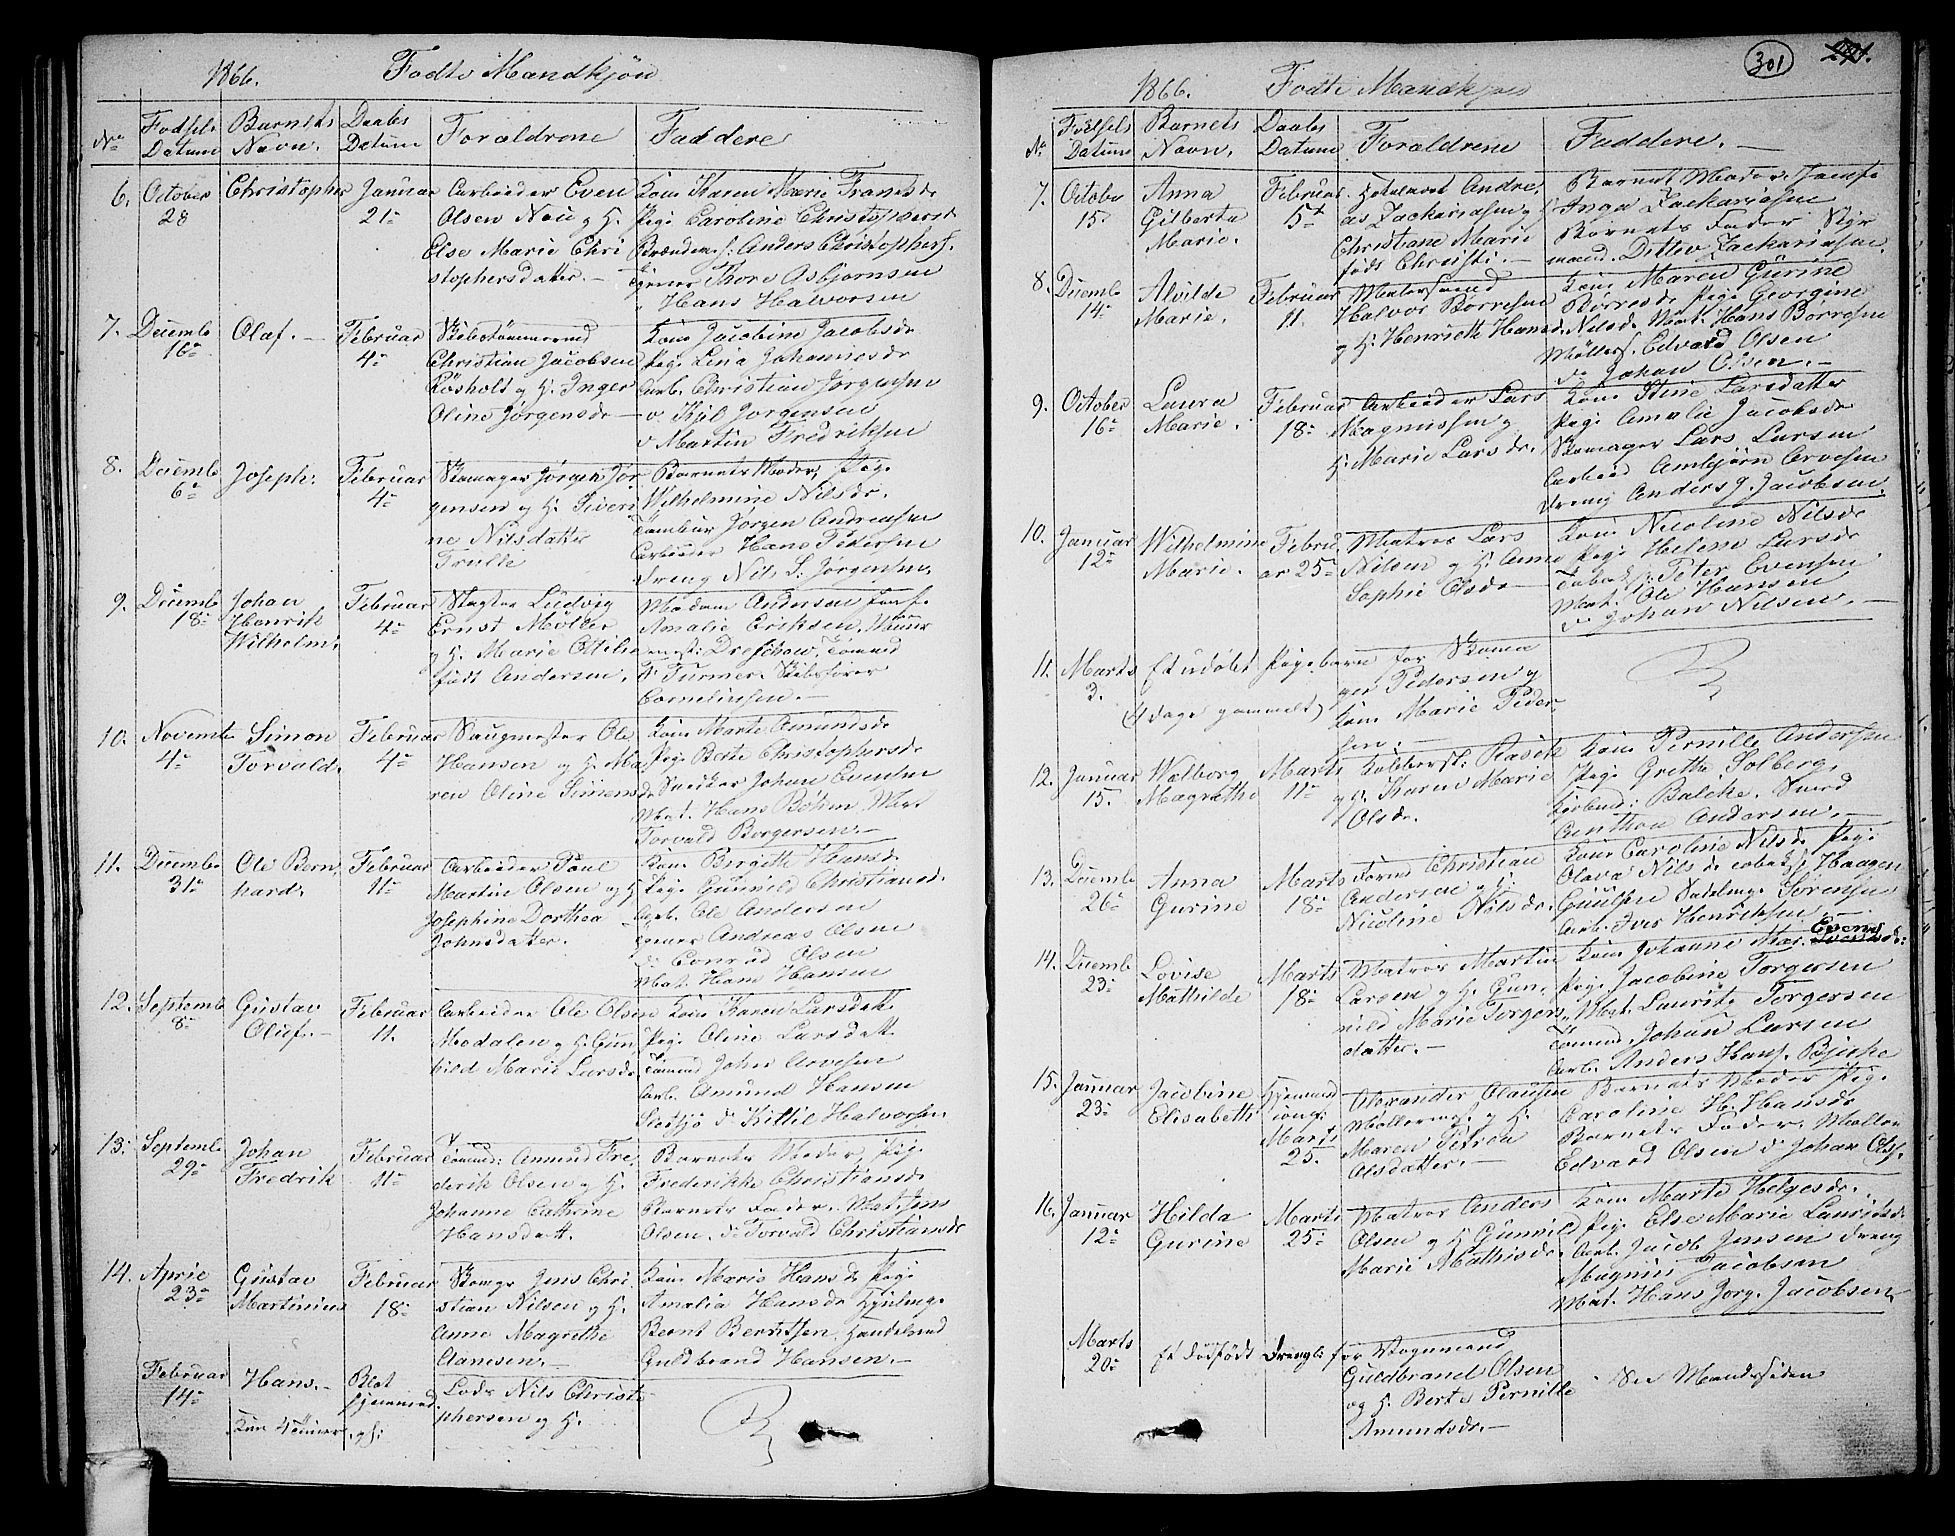 1866. Fødte Mandkjøn
No Fødsels Datum Barnets Navn. Daabs Datum Forældrene Faddere
6. October 28 Christopher Januar 21
Arbeider Even
Olsen Næs og H.
Else Marie Chri
stophersdatter. —
Kone Karen Marie Frantsdr
Pige Caroline Christophersdr
Brændem. f: Anders Christophers.
Thore Osbjørnsen
" Hans Halvorsen
7. Decemb 16 Olaf. — Februar 4
Skibstømmermd
Christian Jacobsen
Røsholt og H. Inger
Oline Jørgensdr —
Kone Jacobine Jacobsdr
Pige Lina Johannesdr
Arb. Christian Jørgensen
" Kjil Jørgensen
" Martin Fredriksen
8. Decemb 6 Joseph. Februar 4
Skomager Jørgen Jør
gensen og H. Siveri
ne Nilsdatter
Trulle
Barnets Moder, Pige
Wilhelmine Nilsdr.
Tambur Jørgen Andreasen
Arbeider Hans Petersen
Dreng Nils S: Jørgensen.
9. Decemb 18 Johan Henrik Wilhelm. Februar 4
Slagter Ludvig
Ernst Møller
og H. Marie Ottilie
født Andersen.
Madam Andersen Jomf.
Amalie Eriksen, Muur
mest: Dreschow, Tømmd
Turmer. Skibsfører
Cornelinsen. —
10. Novemb 4 Simon Torvald. Februar 4
Saugmester Ole
Hansen og H. Ma
ren Oline Simonsdr
Kone Marte Amundsdr
Pige Berte Christophersdr
Snedker Johan Evensen
Mat. Hans Bøhm Mat
Torvald Borgersen. —
11. Decemb 31 Ole Bern hard. Februar 11
Arbeider Paul
Martin Olsen og H
Josephine Dorthea
Johnsdatter.
Kone Birgitte Hansdr
Pige Gunild Christiansd.
Arb. Ole Andersen
Andreas Olsen
do Conrad Olsen
Mat. Hans Hansen
12. Septemb 8 Gustav Oluf. — Februar 11.
Arbeider Ole Olsen
Modalen og H. Gun
hild Marie Larsdr.
Kone Karen Larsdatt
Pige Oline Larsdatt
Tømmd Johan Arvesen
Arb. Amund Hansen
do Kittil Halvorsen.
13. Septemb 29 Johan Fredrik Februar 11
Tømmd: Anmund Fre
derik Olsen og H.
Johanne Cathrine
Hansdatt.
Barnets Moder, Pige
Frederikke Christiansdr
Barnets Fader. Mat. Jens
Olsen. do Torvald Christiansdr
14. April 23 Gustav Martinius Februar 18
Skomgr Jens Chri
stian Nilsen og H.
Anne Magrethe
Clamsen. —
Kone Marie Hansd Pige
Amalia Hansdr
Bernt Berntsen, Handelsmd
Guldbrand Hansen. —
Februar 14 Hans. — Blot hjemmed. gf:
Kun 4 timer
Lods Nils Christ
phersen og H.
301 291.
1866. Fødte Mandkjøn
No Fødsels Datum Barnets Navn. Daabs Datum Forældrene Faddere. —
7. Octobe 15. Anna Gilberta Marie. Februar 15
Andre
as Zackariasen og H
Christiane Marie
født Christi. —
Barnets Moder, Jomf
Inga Zackariasen
Barnets Fader Styr
mand Ditlev Zackariasen
8. Decemb 14. Alvilde Marie. Februar 11.
Matersmd
Halvor Borresen
og H. Henriette Hansd.
Kone Maren Gurine
Borresdr Pige Georgine
Nilsdr Mat. Hans Borresen
Møllers. Edvard Olsen
do Johan Olsen. —
9. October 16 Laura Marie. Februar 18
Arbeider Lars
Magnussen og
H. Marie Larsdr.
Kone Stine Larsdatter
Pige Amalie Jacobsdr
Skomager Lars Larsen
Arbeid Ambjørn Arvesen
Dreng Anders J. Jacobsen.
10. Januar 12 Wilhelmine Marie. Febru ar 25
Matros Lars
Nilsen og H. Anne
Sophie Olsdr
Kone Nicoline Nilsdr
Pige Helene Larsdr
Tobaksf: Peter Evensen
Mat. Ole Hansen
do Johan Nilsen. —
11. Marts 3. Et udøbt Pigebarn for Skoma
ger Pedersen og
(4 dage gammelt) Kone Marie Peder
sen. —
12. Januar 15. Walborg Magrethe Marts 11
Kobberst: Rasik
og H. Karen Marie
Olsdr.
Kone Pernille Andersen
Pige Grethe Solberg,
Balcke. Smed
Anthon Andersen. —
13. Decemb 26 Anna Gurine Marts 18
Tømd Christian
Andersen og H.
Nicoline Nilsdr.
Kone Caroline Nilsdr Pige
Olava Nilsdr Haagen
Gundsen Sadelmg. Sørensen
Arb. Iver Henriksen. —
14. Decemb 23 Lovise Mathilde Marts 18
Matros Martin
Larsen og H. Gun
nild Marie Torgers
datter. —
Kone Johanne Mar. Evensdr
Pige Jacobine Torgersen
Mat. Lauritz Torgersen
Tømmd. Johan Larsen
Arb. Anders Hans. Bjerke
15. Januar 23 Jacobine Elisabeth Hjemmed Marts 25.
Alexander Clausen
Møllermst. og H.
Maren Petrea
Olsdatter. —
Barnets Moder Pige
Caroline H. Hansdr
Barnets Fader, Møller
Edvard Olsen do Johan Ols.
16. Januar 12 Hilda Gurine Marts 25
Matros Anders
Olsen og H Gunnild
Marie Mathisdr.
Kone Marte Helgesdr.
Pige Else Marie Lauritsdr
Arb. Jacob Jensen Dreng
Magnus Jacobsen
Mat. Hans Jørg. Jacobsen
Marts 20 Et dødfødt Drengb. for Vognmand
Guldbrand Olsen
og H. Berte Pernille
Amundsdr. —
See Mandssiden